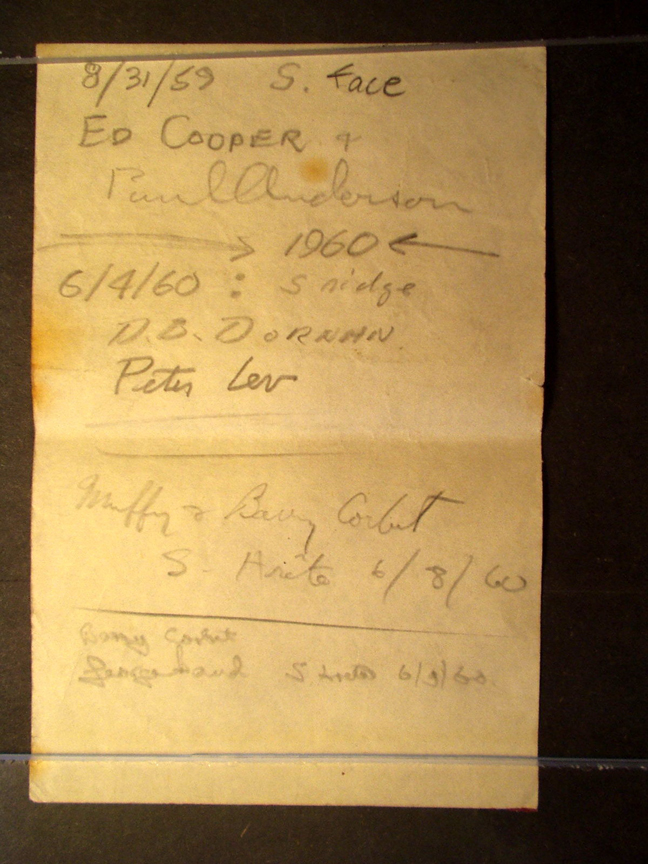 8/31/59 S. Face
ED COOPER &
Paul Anderson
→ 1960 ←
6/4/60 : S ridge
D.B. DORNAN
Peter Lev
Muffy & Barry Corbet
S. Arête 6/8/60
Barry Corbet
6/9/60